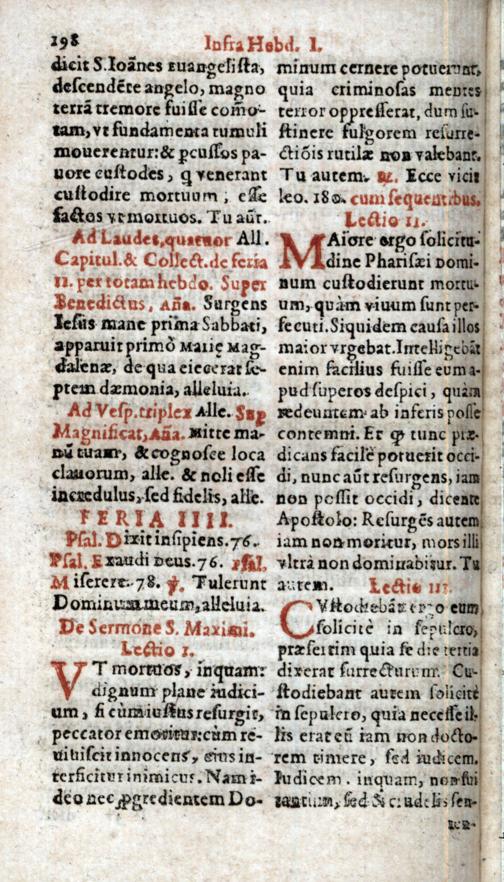 198 Infra Hebd. I.
dicit S. Ioãnes euangelista,
descendẽte angelo, magno
terrã tremore fuisse com̃o-
tam, vt fundamenta tumuli
mouerentur: & ꝑcussos pa-
uore custodes, q̃ venerant
custodire mortuum, esse
factos vt mortuos. Tu aũt.
Ad Laudes, quatuor All.
Capitul. & Collect. de feria
II. per totam hebdo. Super
Benedictus, Aña. Surgens
Iesus mane prima Sabbati,
apparuit primò Marię Mag-
dalenæ, de qua eiecerat se-
ptem dæmonia, alleluia.
Ad Vesp. triplex Alle. Sup
Magnificat, Aña. Mitte ma-
nũ tuam, & cognosce loca
clauorum, alle. & noli esse
incredulus, sed fidelis, alle.
FERIA IIII.
Psal. Dixit insipiens. 76.
Psal. Exaudi Deus. 76. Psal.
Miserere. 78. ℣. Tulerunt
Dominum meum, alleluia.
De Sermone S. Maximi.
Lectio I.
VT mortuos, inquam:
dignum plane iudici-
um, si cùm iustus resurgit,
peccator emoritur: cùm re-
uiuiscit innocens, eius in-
terficitur inimicus. Nam i-
deo nec ꝓgredientem Do-
minum cernere potuerunt,
quia criminosas mentes
terror oppresserat, dum su-
stinere fulgorem resurre-
ctiõis rutilæ non valebant.
Tu autem. ℟. Ecce vicit
leo. 180. cum sequentibus.
Lectio II.
MAiore ergo solicitu-
dine Pharisæi Domi-
num custodierunt mortu-
um, quàm viuum sunt per-
secuti. Siquidem causa illos
maior vrgebat. Intelligebãt
enim facilius fuisse eum a-
pud superos despici, quàm
redeuntem ab inferis posse
contemni. Et ꝙ tunc præ-
dicans facilè potuerit occi-
di, nunc aũt resurgens, iam
non possit occidi, dicente
Apostolo: Resurgẽs autem
iam non moritur, mors illi
vltrà non dominabitur. Tu
autem. Lectio III.
CVstodiebãt ergo eum
solicitè in sepulcro,
præsertim quia se die tertia
dixerat surrecturum. Cu-
stodiebant autem solicitè
in sepulcro, quia necesse il-
lis erat eũ iam non docto-
rem timere, sed iudicem.
Iudicem, inquam, non sui
tantùm, sed & crudelis sen-